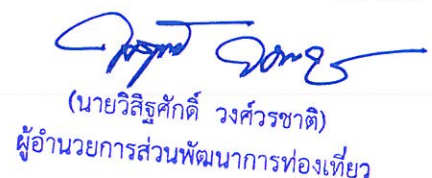 (นายวิสิฐศักดิ์ วงศ์วรชาติ)
ผู้อำนวยการส่วนพัฒนาการท่องเที่ยว